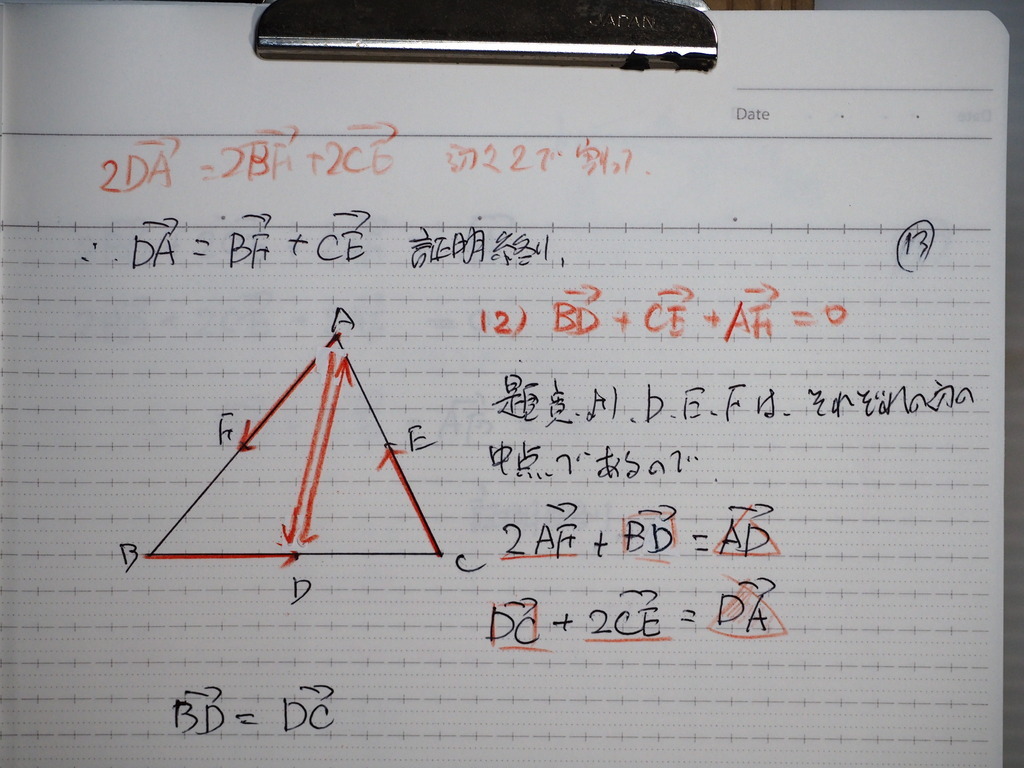 JAPAN
Date
2DA→ = 2BF→ + 2CE→ 辺々2で割って.
∴ DA→ = BF→ + CE→ 証明終り, ⑬
A
(2) BD→ + CE→ + AF→ = 0
題意より、D、E、Fは、それぞれの辺の
F E
中点であるので
2AF→ + BD→ = AD→
B D C
DC→ + 2CE→ = DA→
BD→ = DC→